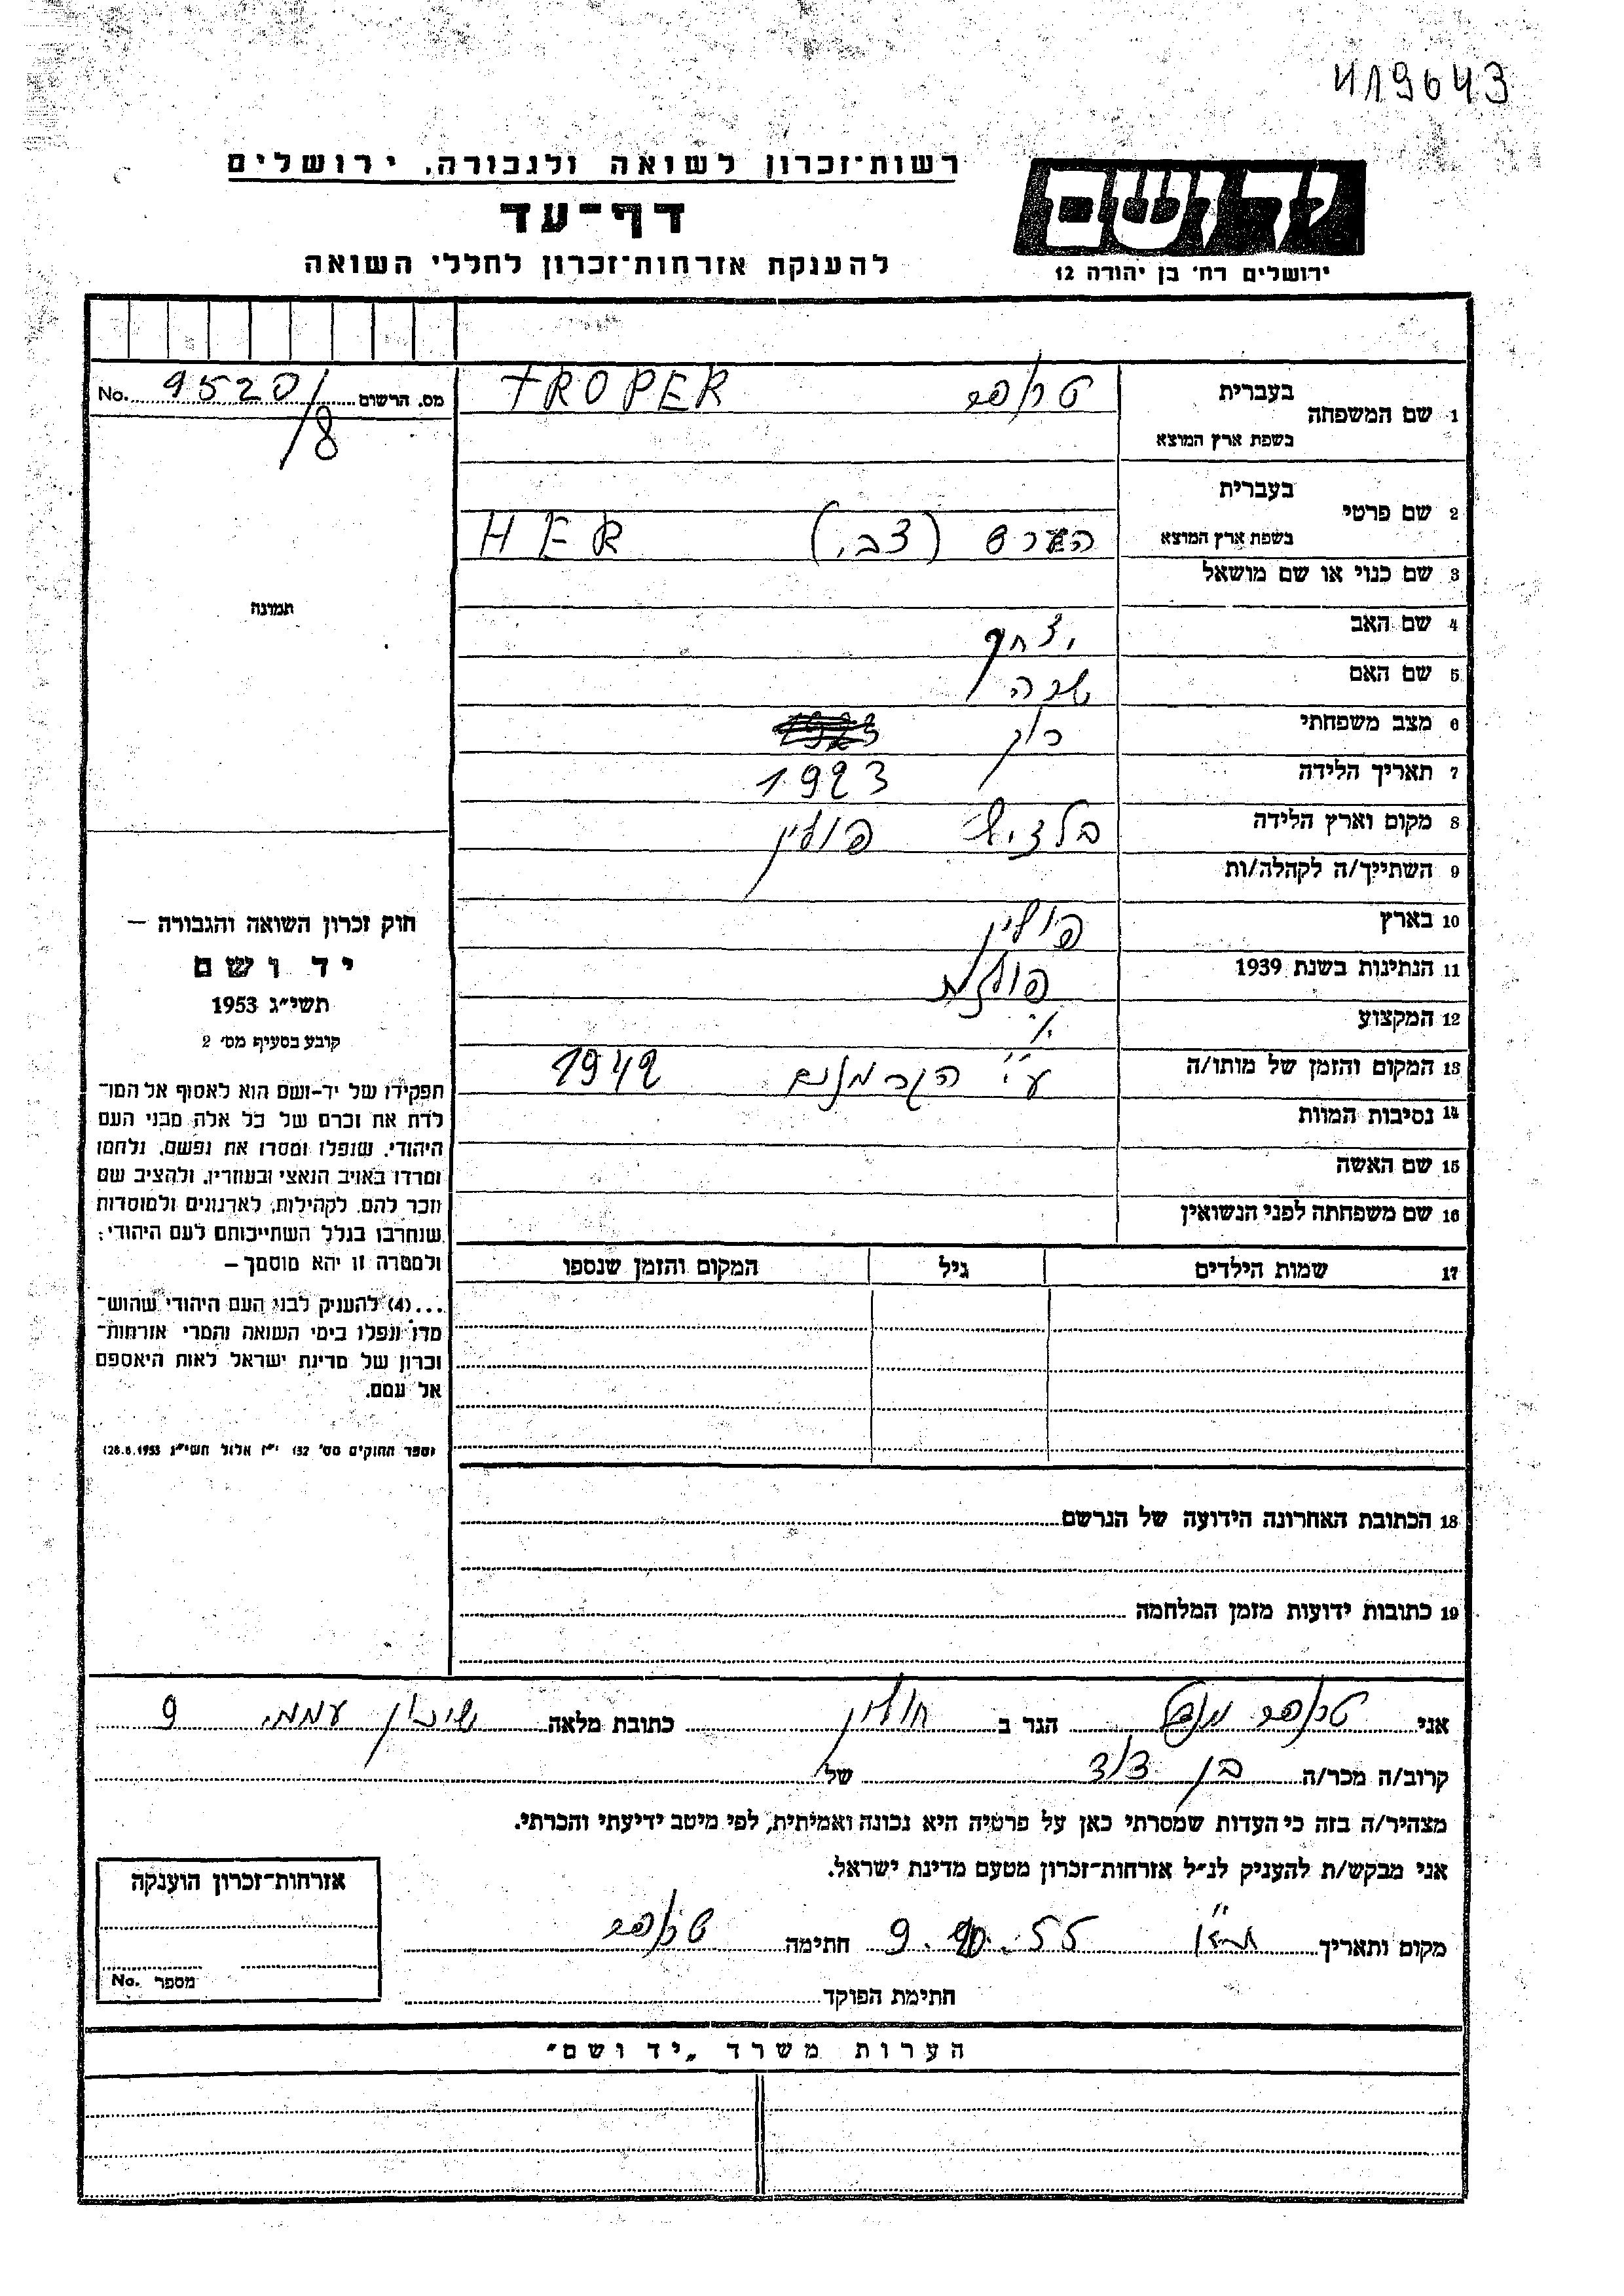 419643
רשות־זכרון לשואה ולגבורה, ירושלים
יד ושם
דף־עד
להענקת אזרחות־זכרון לחללי השואה
ירושלים רח' בן יהודה 12
1 שם המשפחה בעברית טרופר TROPER
בשפת ארץ המוצא
מס. הרשום 9520/8 No.
2 שם פרטי בעברית
בשפת ארץ המוצא הערש (צבי) HER
3 שם כנוי או שם מושאל
תמונה
4 שם האב יצחק
5 שם האם שרה
6 מצב משפחתי רוק
7 תאריך הלידה 1923
8 מקום וארץ הלידה פולין
9 השתייך/ה לקהלה/ות
10 בארץ פולין
11 הנתינות בשנת 1939 פולנית
12 המקצוע
13 המקום והזמן של מותו/ה ע"י הגרמנים 1942
14 נסיבות המוות
15 שם האשה
16 שם משפחתה לפני הנשואין
17 שמות הילדים גיל המקום והזמן שנספו
חוק זכרון השואה והגבורה –
יד ושם
תשי"ג 1953
קובע בסעיף מס' 2
תפקידו של יד-ושם הוא לאסוף אל המו־
לדת את זכרם של כל אלה מבני העם
היהודי, שנפלו ומסרו את נפשם, נלחמו
ומרדו באויב הנאצי ובעוזריו, ולהציב שם
וזכר להם, לקהילות, לארגונים ולמוסדות
שנחרבו בגלל השתייכותם לעם היהודי;
ולמטרה זו יהא מוסמך –
...(4) להעניק לבני העם היהודי שהוש־
מדו ונפלו בימי השואה והמרי אזרחות־
זכרון של מדינת ישראל לאות היאספם
אל עמם.
(ספר החוקים מס' 132 י"ז אלול תשי"ג 28.8.1953)
18 הכתובת האחרונה הידועה של הנרשם
19 כתובות ידועות מזמן המלחמה
אני טרופר הגר ב חולון כתובת מלאה שיכון עממי 9
קרוב/ה מכר/ה בן דוד של
מצהיר/ה בזה כי העדות שמסרתי כאן על פרטיה היא נכונה ואמיתית, לפי מיטב ידיעתי והכרתי.
אני מבקש/ת להעניק לנ"ל אזרחות־זכרון מטעם מדינת ישראל.
מקום ותאריך 55 חתימה טרופר
חתימת הפוקד
אזרחות־זכרון הוענקה
מספר No.
הערות משרד „יד ושם"